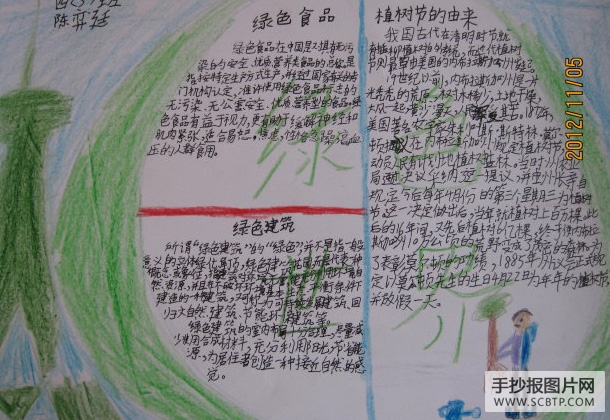 四(3)班
陈弈廷
绿色食品
绿色食品在中国是对具有无污
染的安全、优质、营养类食品的总称。是
指按特定生产方式生产,并经国家有关的专
门机构认定,准许使用绿色食品标志的
无污染、无公害、安全、优质、营养型的食品。绿
色食品有益于视力,更有助于缓解神经和
肌肉紧张,适合易怒、焦虑、
压的人群食用。
绿色建筑
所谓“绿色建筑”的“绿色”,并不是指一般
意义的立体绿化、
概念或象征,
建造的一种建筑,又可称为
归大自然建筑、节能环保建筑等。
绿色建筑的室内布局十分合理,尽量减
少使用合成材料,充分利用阳光,节省能
源,为居住者创造一种接近自然的感
觉。
植树节的由来
我国古代在清明时节就
有插柳植树的传统,而近代植树
节则最早由美国的内布拉斯加州发起。
19世纪以前,内布拉斯加州是一片
光秃秃的荒原,树木稀少,土地干燥,
大风一起,黄沙满天,人民深受其苦。1872年,
美国著名农学家朱利叶斯·斯特林·莫尔
顿提议在内布拉斯加州规定植树节,
动员人民有计划地植树造林。当时州农业
局通过决议采纳这一提议,并由州长亲自
规定今后每年4月份的第三个星期三为植树
节。这一决定做出后,当年就植树上百万棵。此
后的16年间,又先后植树6亿棵,终于使内布拉
斯加州10万公顷的荒野变成了茂密的森林。为
了表彰莫尔顿的功绩,1885年州议会正式规
定以莫尔顿先生的生日4月22日为每年的植树节,
并放假一天。
绿色
世界
2012/11/05
手抄报图片网
WWW.SCBTP.COM